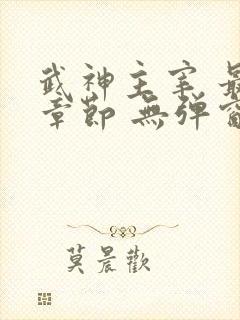 武神主宰 最
章節 無弹窗
莫晨歡